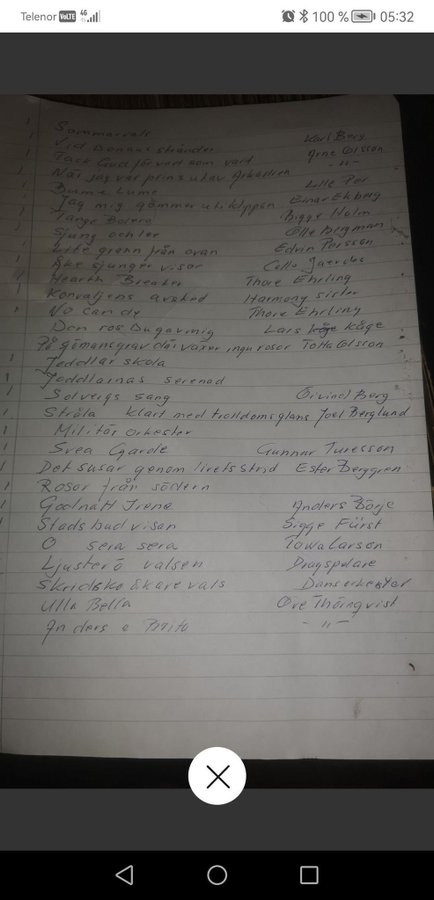 Telenor VoLTE 4G 100 % 05:32
Sommarvals Karl Berg
Vid Donaus stränder Arne Olsson
Tack Gud för ved som vart -"-
När jag var prins utav Arkadien
Bjume Lume Lille Per
Jag mig gömmer uti klippan Einar Ekberg
Tango Bolero Bigge Holm
Sjung och le Olle Bergman
Lite grann från ovan Edvin Persson
Åke sjunger visor Cello
Hearth Breaker Thore Ehrling
Konvaljens avsked Harmony sister
No can dy Thore Ehrling
Den ros Du gav mig Lars Kåge
På gömans grav där växer inga rosor Totta Olsson
Jeddlar skola
Jeddlarnas serenad
Solveigs sång Öivind Berg
Stråla klart med trolldomsglans Joel Berglund
Militär orkester
Svea Garde Gunnar Turesson
Det susar genom livets strid Ester Berggren
Rosor från södern
Godnatt Irene Anders Börje
Stadsbudvisan Sigge Fürst
O sera sera Towa Carson
Ljusterö valsen Dragspelare
Skridskoåkarevals Dansorkester
Ulla Bella Ove Thörnqvist
Anders o Britta -"-